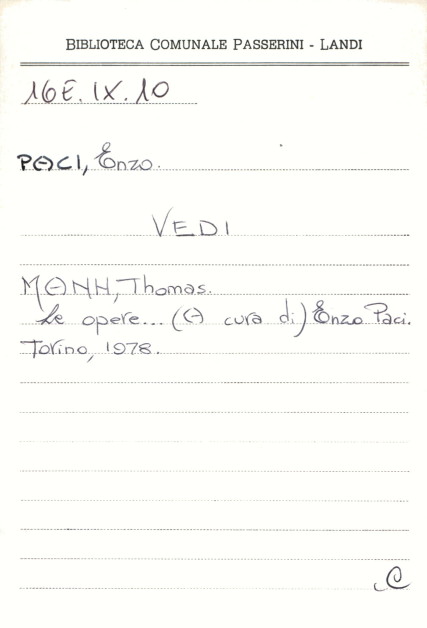 BIBLIOTECA COMUNALE PASSERINI - LANDI
16E.IX.10
PACI, Enzo.
VEDI
MANN, Thomas.
Le opere... (A cura di) Enzo Paci.
Torino, 1978.